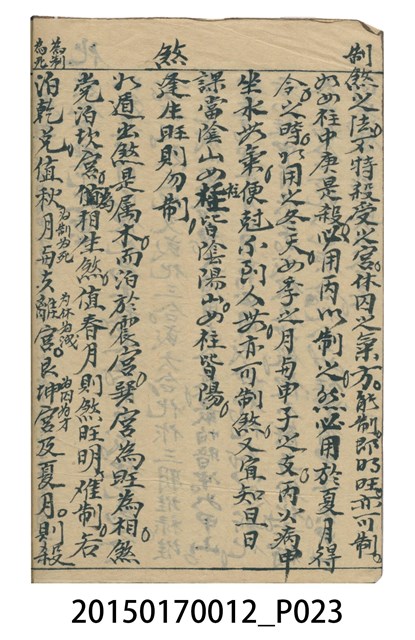 制煞
制煞之法不特殺受之宮休囚之氣方能制即旺亦可制
如如柱中庚是殺必用丙以制之然必用於夏月得
令之時用之冬天如季之月與甲子之支丙火病申
坐水如氣便尅不到人如亦可制煞又宜知旦日
課當陰山如柱皆陰陽山如柱皆陽
逢生旺則勿制
如遁出煞是属木而泊於震宮巽宮為旺為相煞
党泊坎宮為相生煞值春月則煞旺明难制若
為制為死
泊乾兑值秋月與夫離宮艮坤宮及夏月則殺
為制為死 為休為洩 為囚為才
20150170012_P023